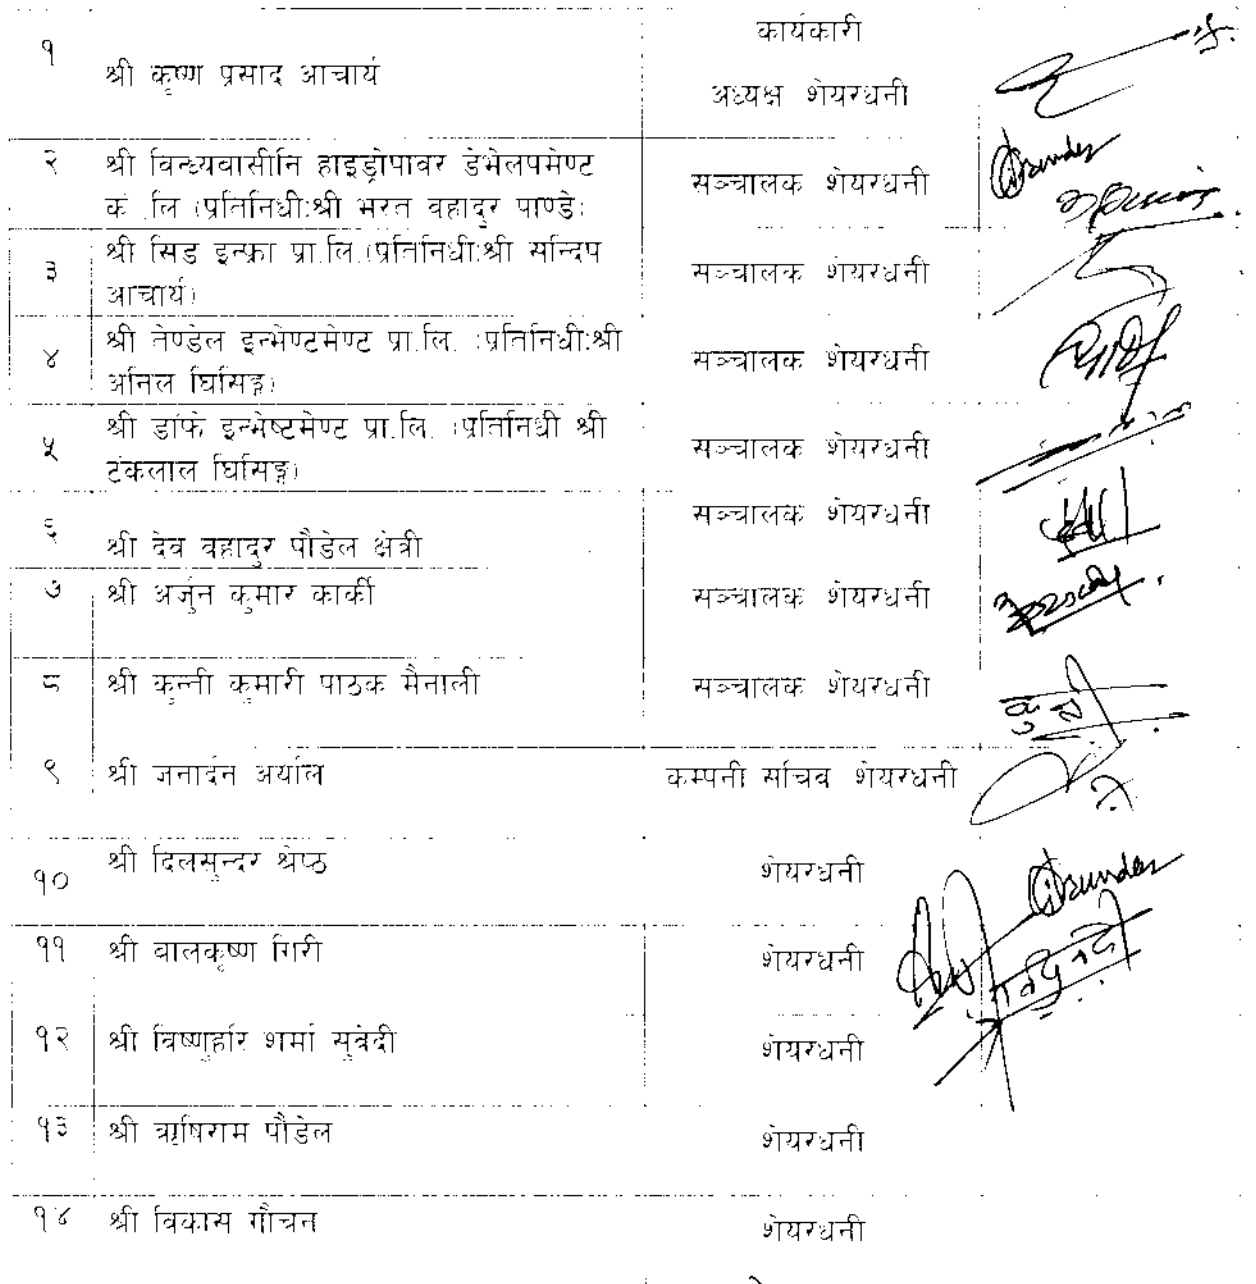 कार्यकारी
१ श्री कृष्ण प्रसाद आचार्य
अध्यक्ष शेयरधनी
२ श्री विन्ध्यवासीनि हाइड्रोपावर डेभेलपमेण्ट
कं.लि (प्रतिनिधी:श्री भरत वहादुर पाण्डे)
सञ्चालक शेयरधनी
३ श्री सिड इन्फ्रा प्रा.लि.(प्रतिनिधी:श्री सन्दिप
आचार्य)
सञ्चालक शेयरधनी
४ श्री तेण्डेल इन्भेण्टमेण्ट प्रा.लि. (प्रतिनिधी:श्री
अनिल घिसिङ्ग)
सञ्चालक शेयरधनी
५ श्री डाँफे इन्भेष्टमेण्ट प्रा.लि. (प्रतिनिधी श्री
टंकलाल घिसिङ्ग)
सञ्चालक शेयरधनी
६ श्री देव वहादुर पौडेल क्षेत्री
सञ्चालक शेयरधनी
७ श्री अर्जुन कुमार कार्की
सञ्चालक शेयरधनी
८ श्री कुन्नी कुमारी पाठक मैनाली
सञ्चालक शेयरधनी
९ श्री जनार्दन अर्याल
कम्पनी सचिव शेयरधनी
१० श्री दिलसुन्दर श्रेष्ठ
शेयरधनी
११ श्री बालकृष्ण गिरी
शेयरधनी
१२ श्री विष्णुहरि शर्मा सुवेदी
शेयरधनी
१३ श्री ऋषिराम पौडेल
शेयरधनी
१४ श्री विकास गौचन
शेयरधनी